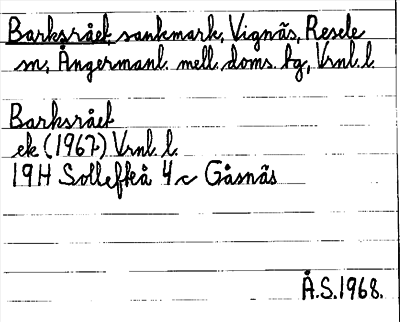 Barksrået, sankmark, Vignäs, Resele
sn, Ångermanl. mell. doms. bg, Vrnl. l.
Barksrået
ek (1967) Vrnl. l.
19H Sollefteå 4 c Gåsnäs
Å.S.1968.